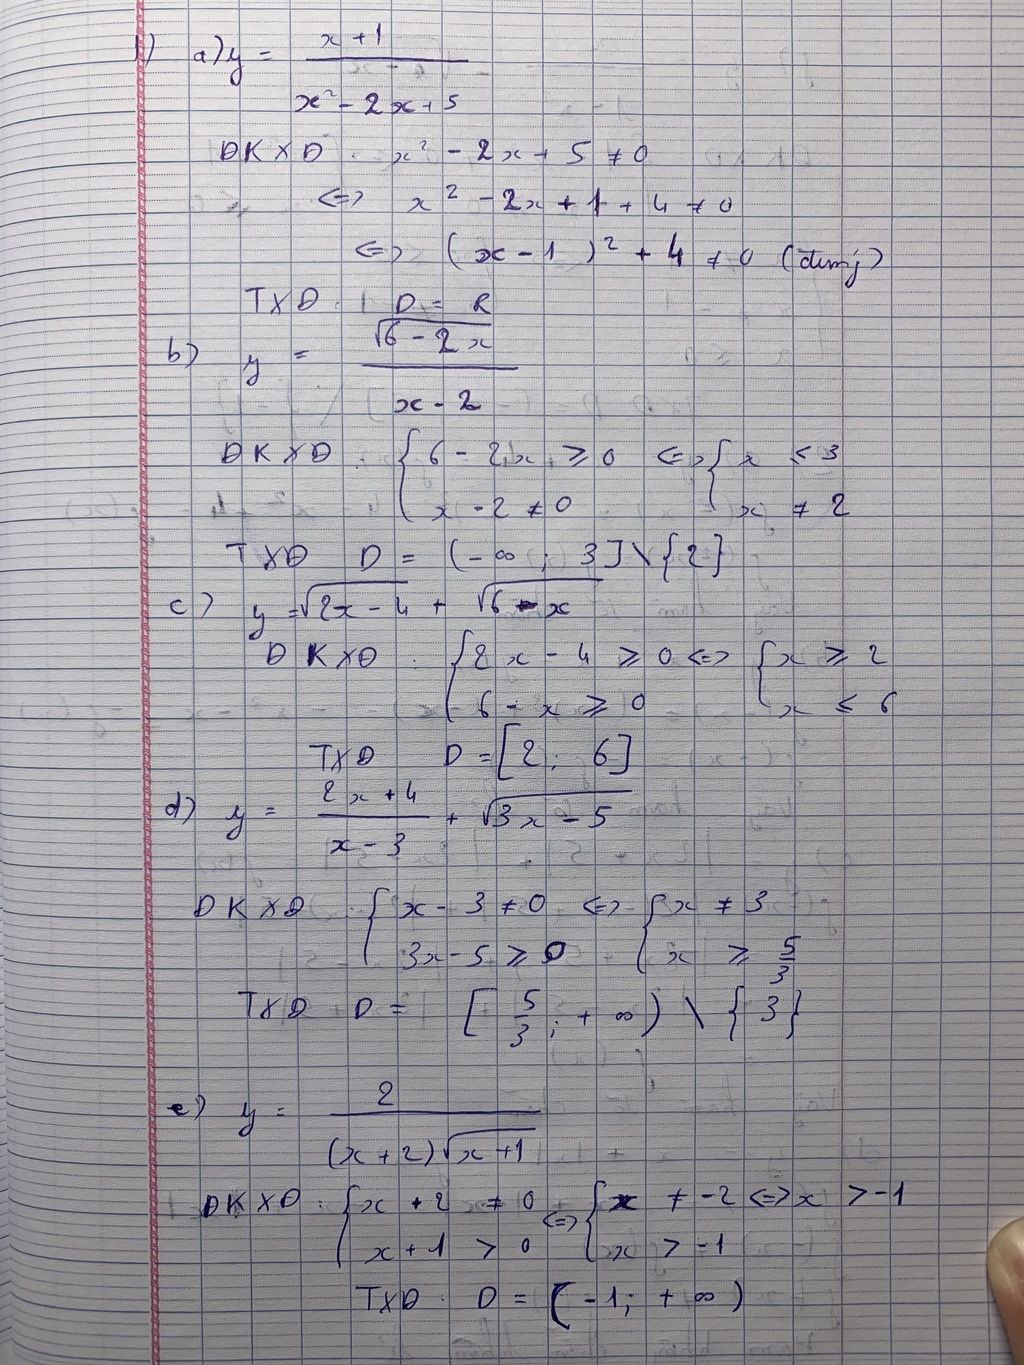 1) a) y = (x + 1) / (x² - 2x + 5)
ĐKXĐ : x² - 2x + 5 ≠ 0
<=> x² - 2x + 1 + 4 ≠ 0
<=> (x - 1)² + 4 ≠ 0 (đúng)
TXĐ : D = R
b) y = √(6 - 2x) / (x - 2)
ĐKXĐ : { 6 - 2x ⩾ 0 <=> { x ≤ 3
x - 2 ≠ 0 x ≠ 2
TXĐ D = (-∞ ; 3] \ {2}
c) y = √(2x - 4) + √(6 - x)
ĐKXĐ : { 2x - 4 ⩾ 0 <=> { x ⩾ 2
6 - x ⩾ 0 x ≤ 6
TXĐ D = [2 ; 6]
d) y = (2x + 4) / (x - 3) + √(3x - 5)
ĐKXĐ : { x - 3 ≠ 0 <=> { x ≠ 3
3x - 5 ⩾ 0 x ⩾ 5/3
TXĐ D = [5/3 ; +∞) \ {3}
e) y = 2 / ((x + 2)√(x + 1))
ĐKXĐ : { x + 2 ≠ 0 <=> { x ≠ -2 <=> x > -1
x + 1 > 0 x > -1
TXĐ : D = (-1; +∞)